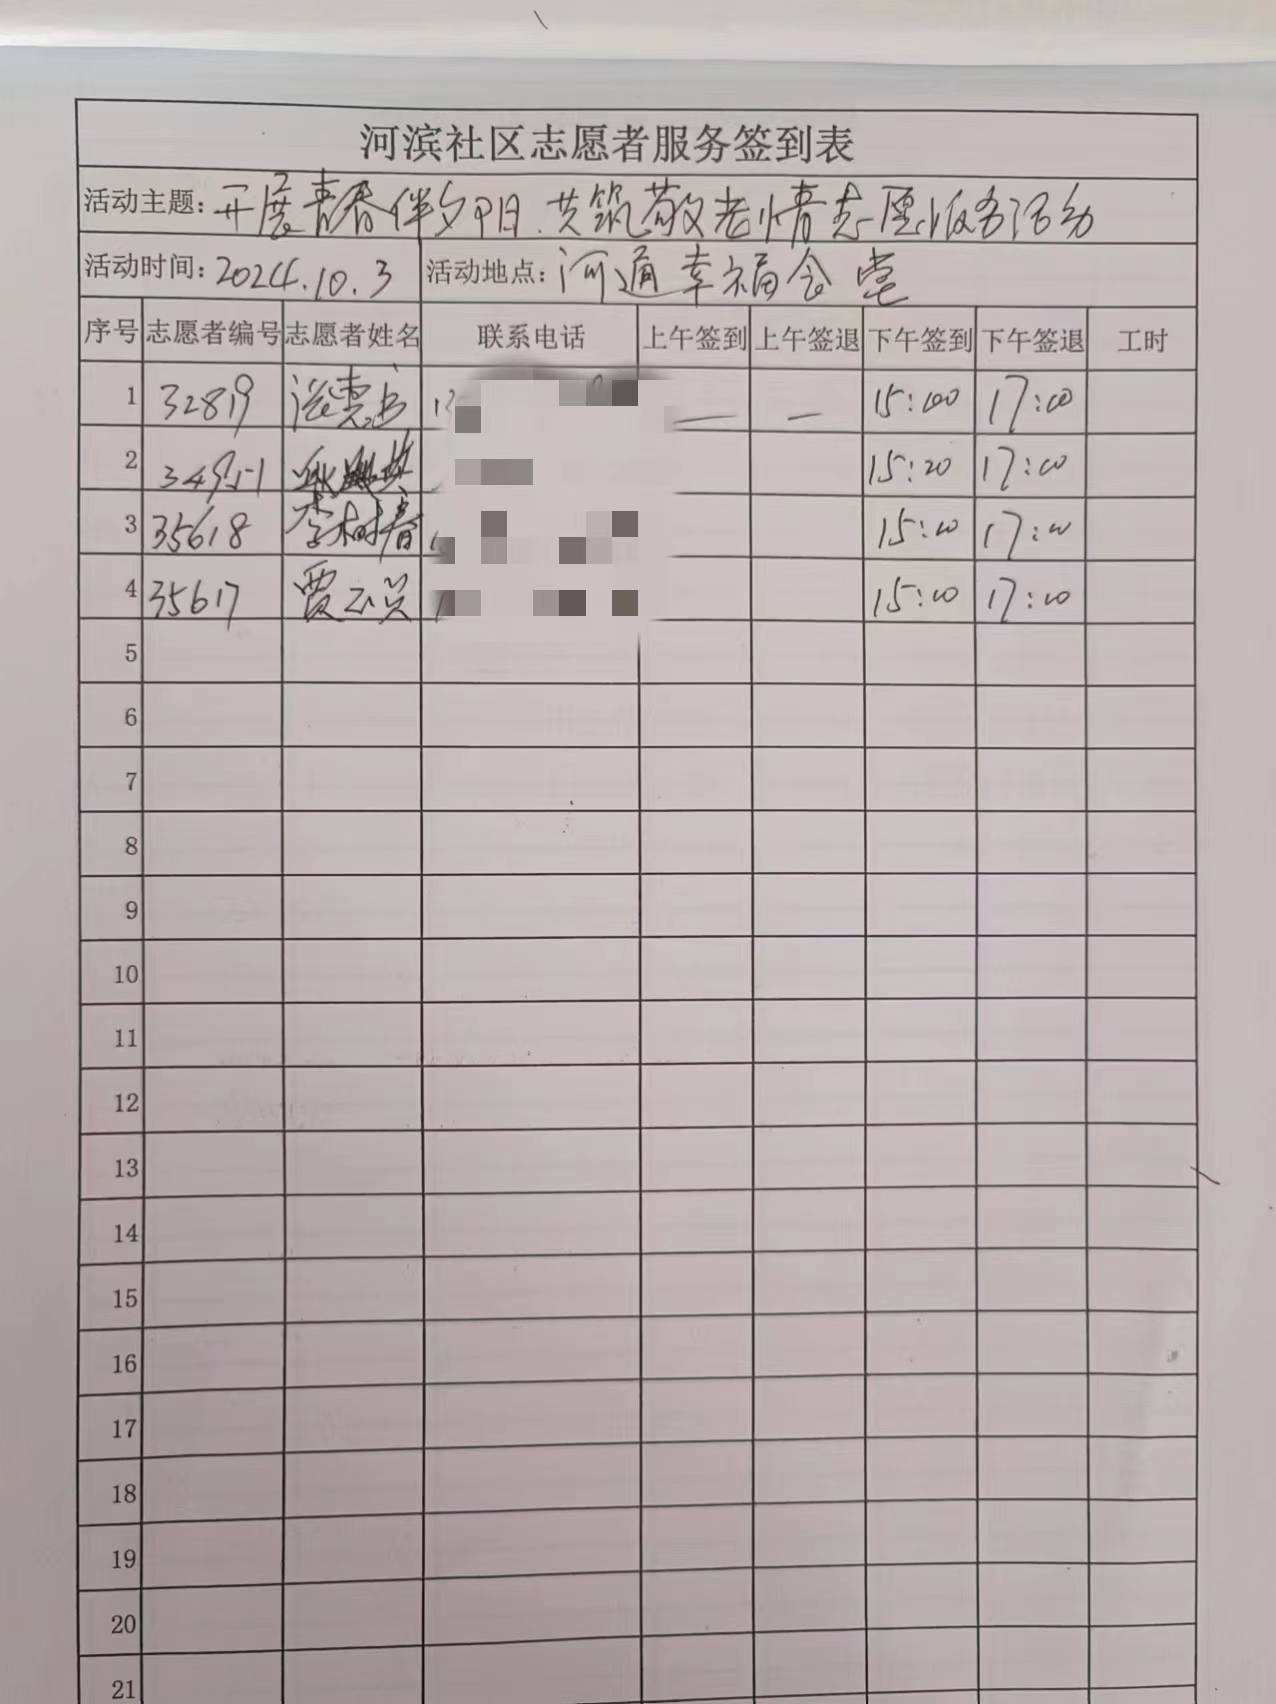 河滨社区志愿者服务签到表
活动主题：开展青春伴夕阳.共筑敬老情志愿服务活动
活动时间：2024.10.3 活动地点：河通幸福会堂
序号 志愿者编号 志愿者姓名 联系电话 上午签到 上午签退 下午签到 下午签退 工时
1 32819 — — 15:00 17:00
2 15:20 17:00
3 35618 李树春 15:00 17:00
4 35617 贾 15:00 17:00
5
6
7
8
9
10
11
12
13
14
15
16
17
18
19
20
21